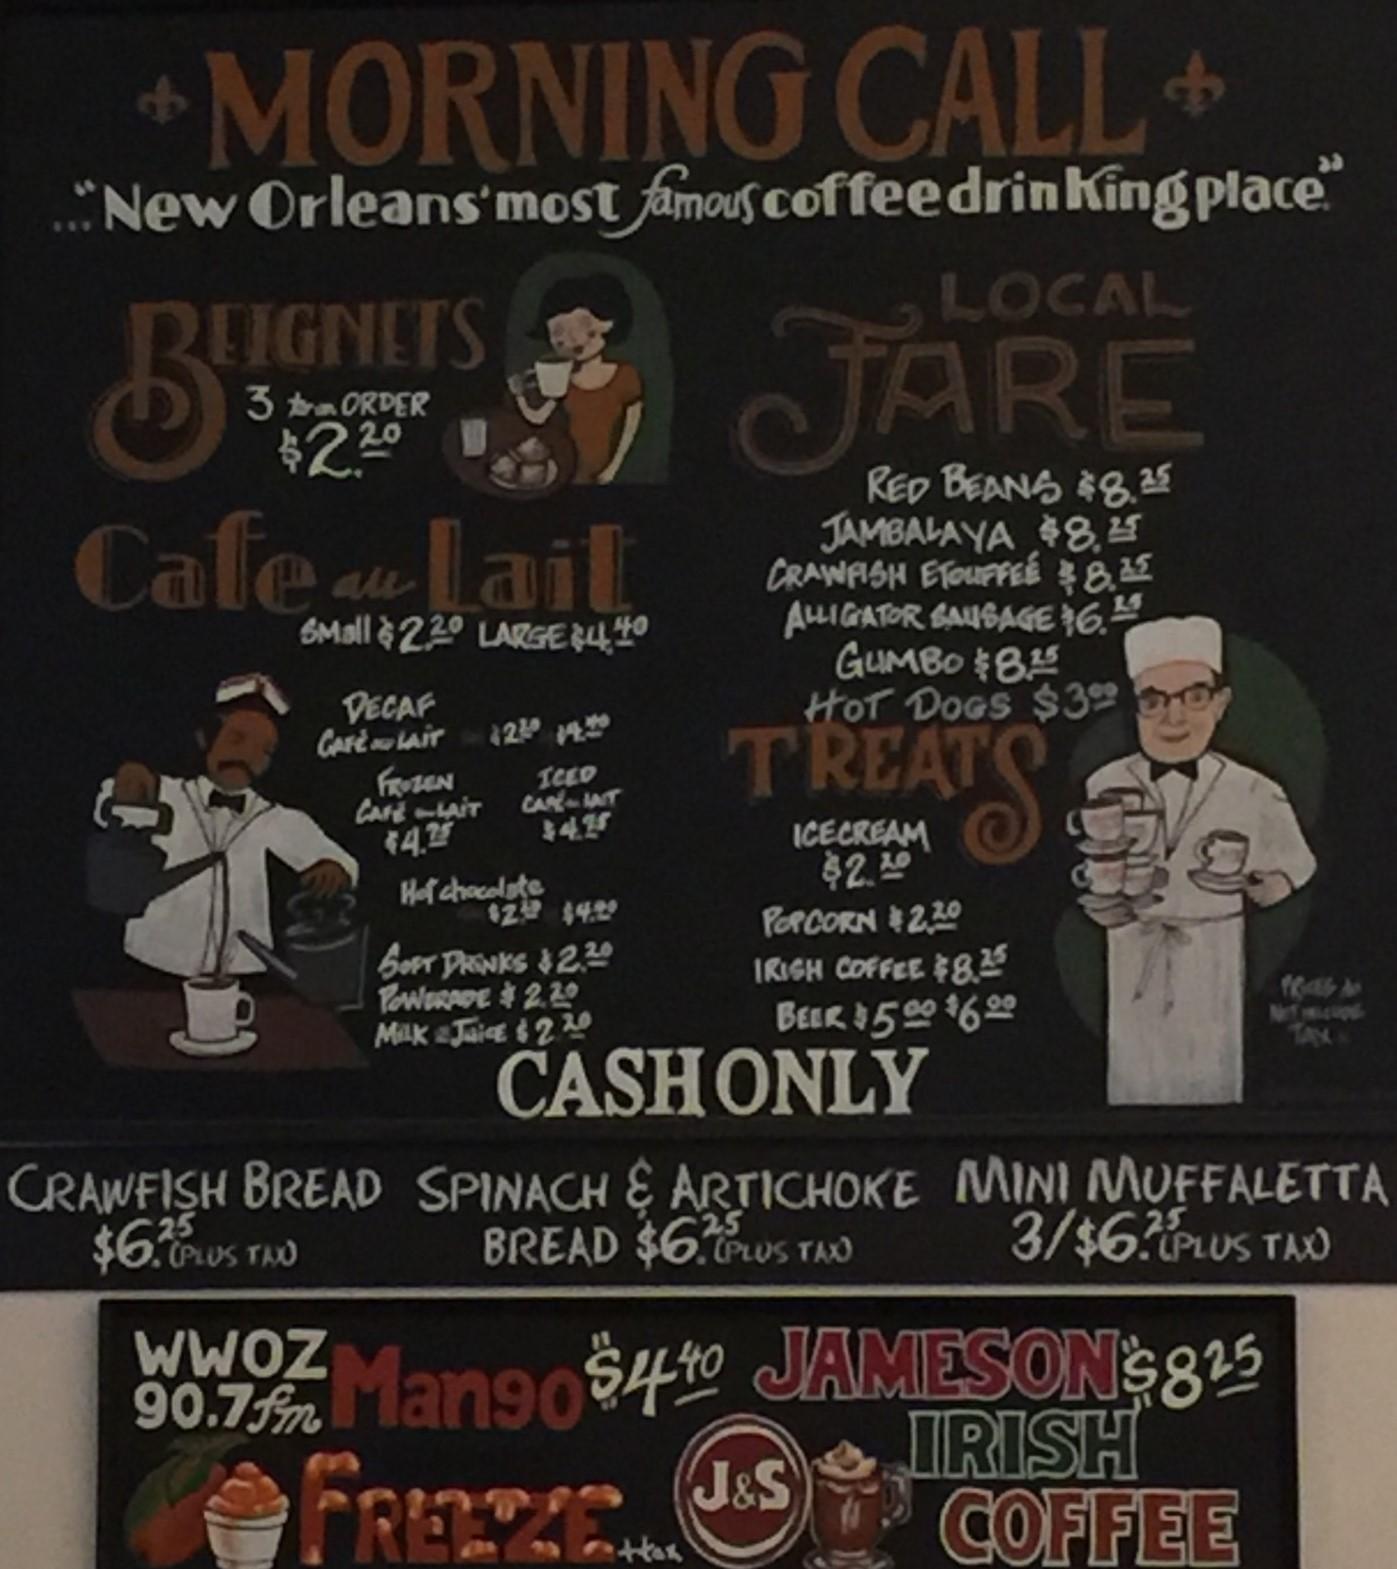 MORNING CALL
..."New Orleans' most famous coffee drinking place."
BEIGNETS
3 to an ORDER
$2.20
Cafe au Lait
Small $2.20 LARGE $4.40
DECAF
Café au LAIT $2.20 $4.40
FROZEN
CAFÉ au LAIT
$4.75
ICED
CAFÉ au LAIT
$4.75
Hot chocolate
$2.20
SOFT DRINKS $2.20
POWERADE $2.20
MILK Juice $2.20
LOCAL
FARE
RED BEANS $8.25
JAMBALAYA $8.25
CRAWFISH ETOUFFEÉ $8.25
ALLIGATOR SAUSAGE $6.25
GUMBO $8.25
HOT DOGS $3.00
TREATS
ICECREAM
$2.20
POPCORN $2.20
IRISH COFFEE $8.25
BEER $5.00 $6.00
PRICES do
NOT INCLUDE
TAX
CASH ONLY
CRAWFISH BREAD
$6.25 (PLUS TAX)
SPINACH & ARTICHOKE
BREAD $6.25 (PLUS TAX)
MINI MUFFALETTA
3/$6.25 (PLUS TAX)
WWOZ
90.7 fm
Mango $4.40
FREEZE +tax
J&S
JAMESON $8.25
IRISH
COFFEE